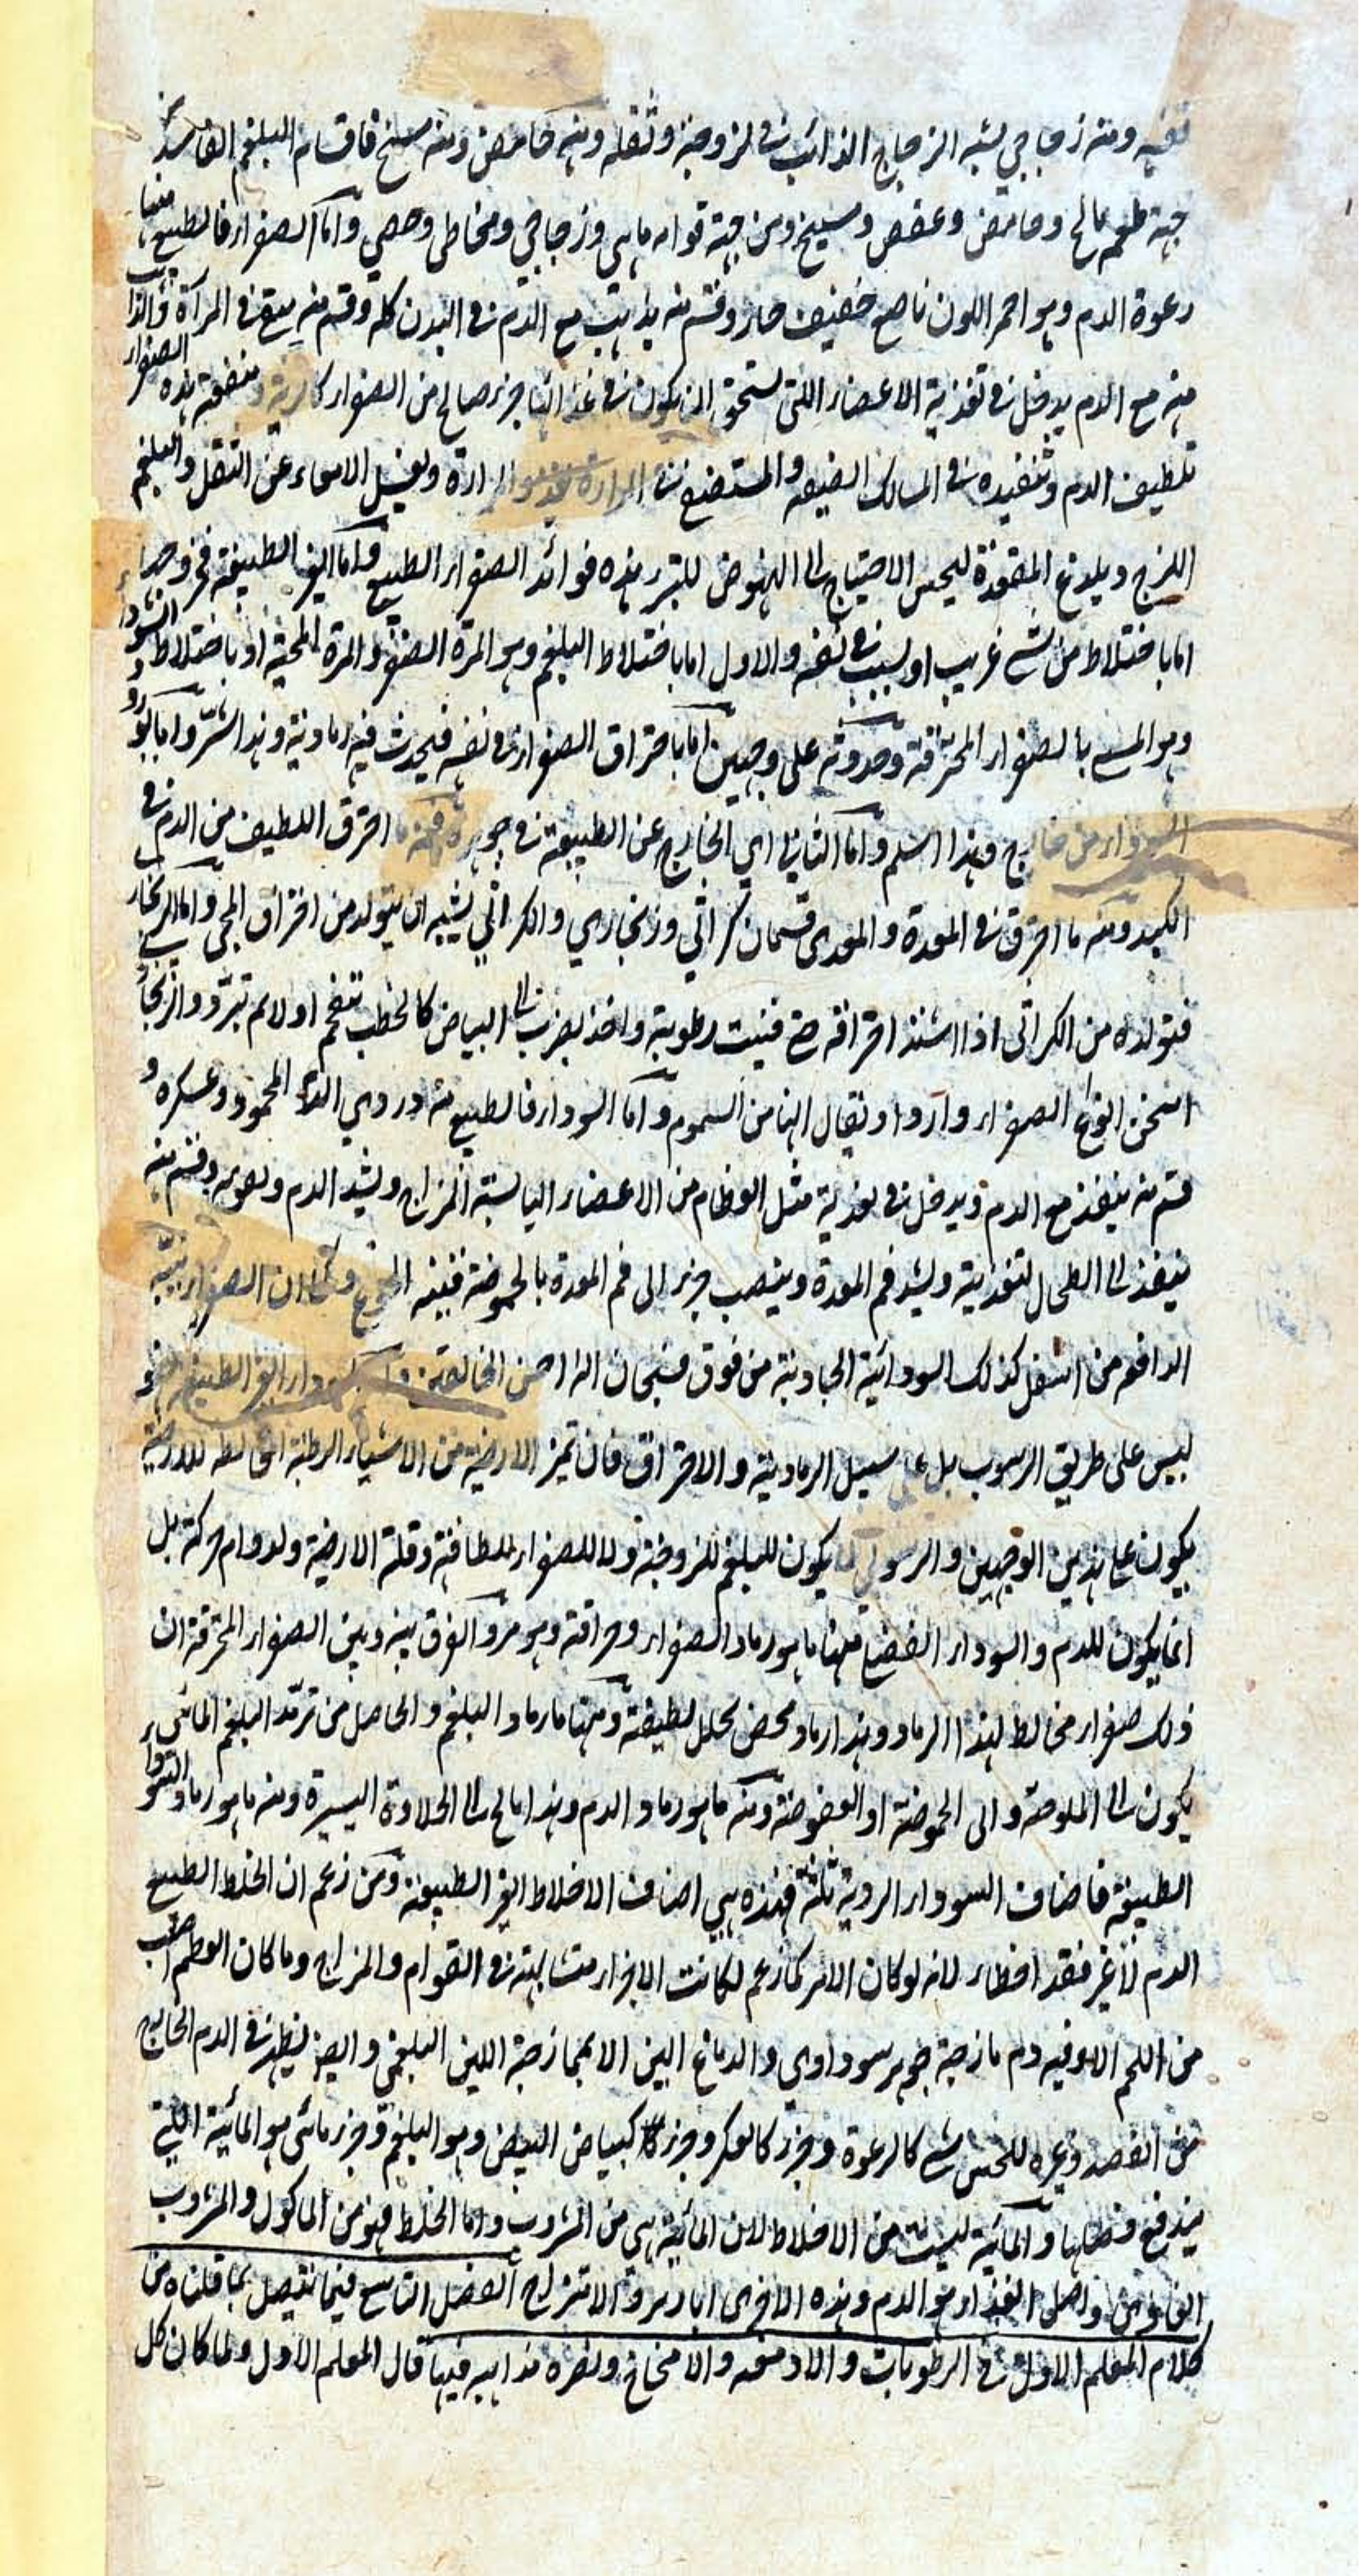 تفه ومنه زجاجي يشبه الزجاج الذائب في لزوجته وثقله ومنه حامض ومنه مسيخ فاقسام البلغم الفاسد من
جهة طعمه مالح وحامض وعفص ومسيخ ومن جهة قوامه مايي وزجاجي ومخاطي وجصي واما الصفراء فالطبيع منها
رغوة الدم وهو احمر اللون ناصع خفيف حار وقسم منه يذهب مع الدم في البدن كله وقسم منه يبقى في المرارة والذاهب
منه مع الدم يدخل في تغذية الاعضاء التي تستحق ان يكون في غذائها جزء صالح من الصفراء كالرية ومنفعة هذه الصفراء
تلطيف الدم وتنفيذه في المسالك الضيقة والمستضيع في المرارة المرارة ويغسل الامعاء عن الثفل والبلغم
اللزج ويلدغ المقعدة ليحس الاحتياج الى النهوض للتبرز هذه فوائد الصفراء الطبيع واما الغير الطبيعة فخروجها
اما باختلاط من شيء غريب او لسبب في نفسه والاول اما باختلاط البلغم وهو المرة الصفراء والمرة المحية او باختلاط السوداء
وهو المسمى بالصفراء المحترقة وحدوثه على وجهين اما باحتراق الصفراء في نفسه فيحدث فيه رمادية وهذا اشر واما بورود
السوداء من خارج وهذا اسلم واما الثاني اي الخارج عن الطبيعة في جوهره فمنه ما احترق اللطيف من الدم في
الكبد ومنه ما احترق في المعدة والمعدي قسمان كراثي وزنجاري والكراثي يشبه ان يتولد من احتراق المحي واما الزنجاري
فتولده من الكراثي اذا اشتد احتراقه حتى فنيت رطوبته واخذ يضرب الى البياض كالحطب تتفحم اولا ثم تبرد والزنجاري
اسخن انواع الصفراء واردا ويقال انها من السموم واما السوداء فالطبيع منه دردي الدم المحمود وعسكره و
قسم منه ينفذ مع الدم ويدخل في تغذية مثل العظام من الاعضاء اليابسة المزاج ويشد الدم ويقويه وقسم منه
ينفذ الى الطحال لتغذيته ويشد فم المعدة وينصب جزء الى فم المعدة بالحموضة فينبه الجوع وكما ان الصفراء ينبه
الدافعة من اسفل كذلك السودائية الجاذبة من فوق فسبحان الله احسن الخالقين واما السوداء الغير الطبيعة فهو
ليس على طريق الرسوب بل على سبيل الرمادية والاحتراق فان تميز الارضية من الاشياء الرطبة المخالطة للارضية
يكون على هذين الوجهين والرسوب لا يكون للبلغم للزوجته ولا للصفراء للطافته وقلة الارضية ولدوام حركته بل
انما يكون للدم والسوداء الفضع فمنها ما هو رماد الصفراء وحراقته وهو مر والفرق بينه وبين الصفراء المحترقة ان
ذلك صفراء مخالط لهذا الرماد وهذا رماد محض تحلل لطيفه ومنها ما رماد البلغم والحاصل من ترمد البلغم المائي
يكون الى الملوحة والى الحموضة او العفوضة ومنه ما هو رماد الدم وهذا مالح الى الحلاوة اليسيرة ومنه ما هو رماد السوداء
الطبيعة فاصناف السوداء الردية ثلثة فهذه هي اصناف الاخلاط الغير الطبيعة ومن زعم ان الخلط الطبيع
الدم لا غير فقد اخطاء لانه لو كان الامر كما زعم لكانت الاجزاء متشابهة في القوام والمزاج وما كان العظم اصلب
من اللحم الا وفيه دم مازجه جوهر سوداوي والدماغ الين الا بممازجة اللين البلغمي وايضا ينظر في الدم الخارج
من الفصد وغيره للحس شيء كالرغوة وجزء كالعكر وجزء كبياض البيض وهو البلغم وجزء مائي هو المائية التي
يندفع فضلها والمائية ليست من الاخلاط لان المائية هي من المشروب واما الخلط فهو من الماكول والمشروب
واصل الغذاء هو الدم وهذه الاخرى ابازير والامتزاج الفصل التاسع فيما يتصل بما قلناه من
كلام المعلم الاول في الرطوبات والادمغه والامخاخ ونصرة مذاهبه فيها قال المعلم الاول ولما كان كل